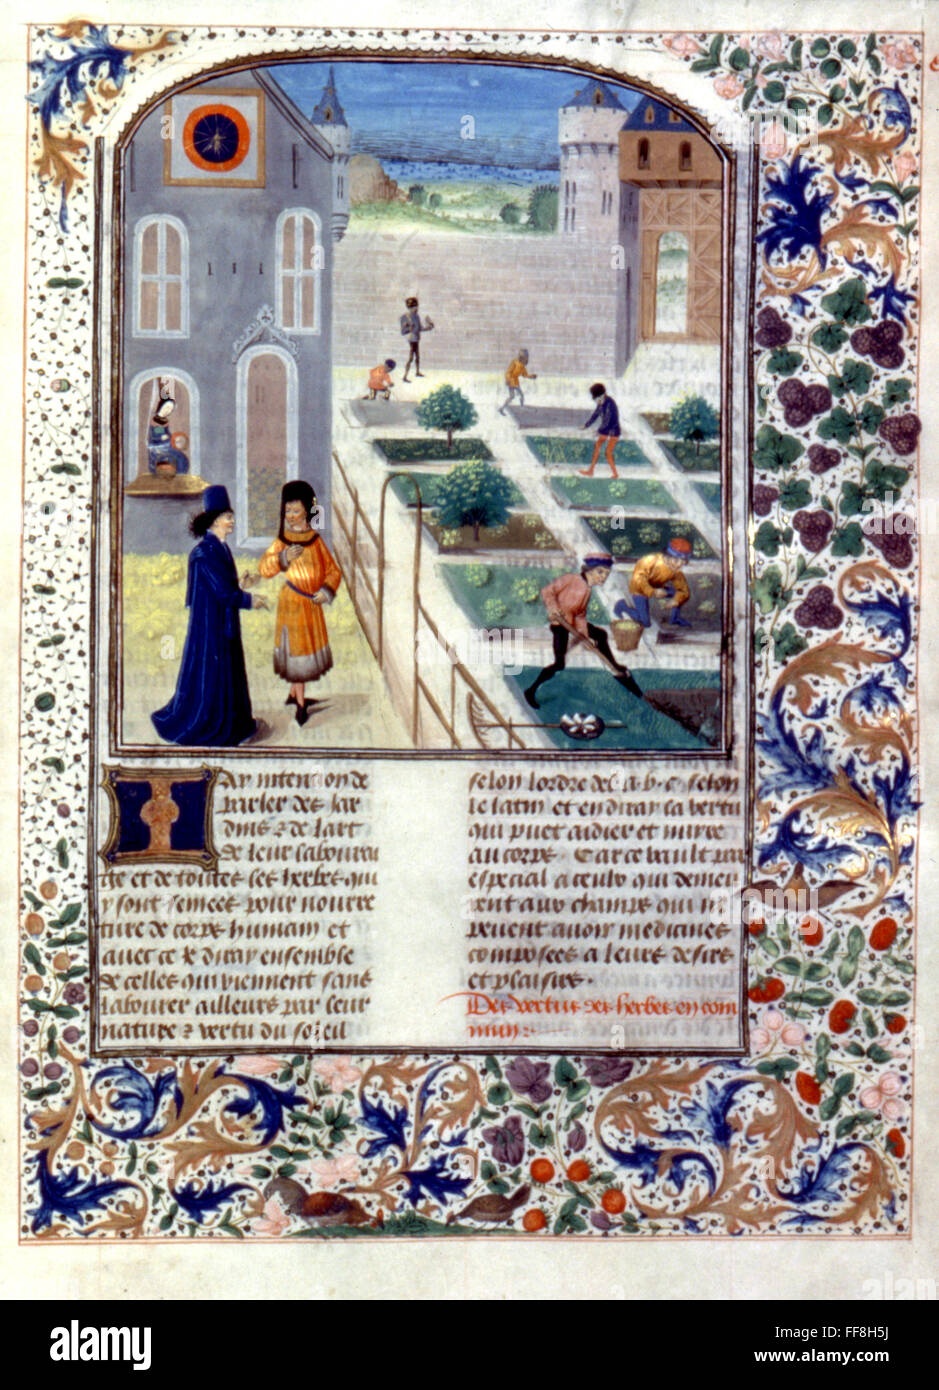 Jay intencion de
parler des Jar
dins et de lart
de leur labouraı
ge et de toutes les herbes qui
y sont semees pour nourre
ture de corps humain et
avec ce Je diray ensemble
de celles qui viennent sans
labourer ailleurs par leur
nature et vertu du soleil
selon lordre de .a.b.c. selon
le latin et en diray la vertu
qui puet aidier et nuyre
au corps. Car ce vault par
especial a ceulx qui demeu
rent aux champs qui ne
peuent avoir medicines
composees a leurs desirs
et plaisirs.
Des vertus des herbes en com
mun.
alamy
Image ID: FF8H5J
www.alamy.com